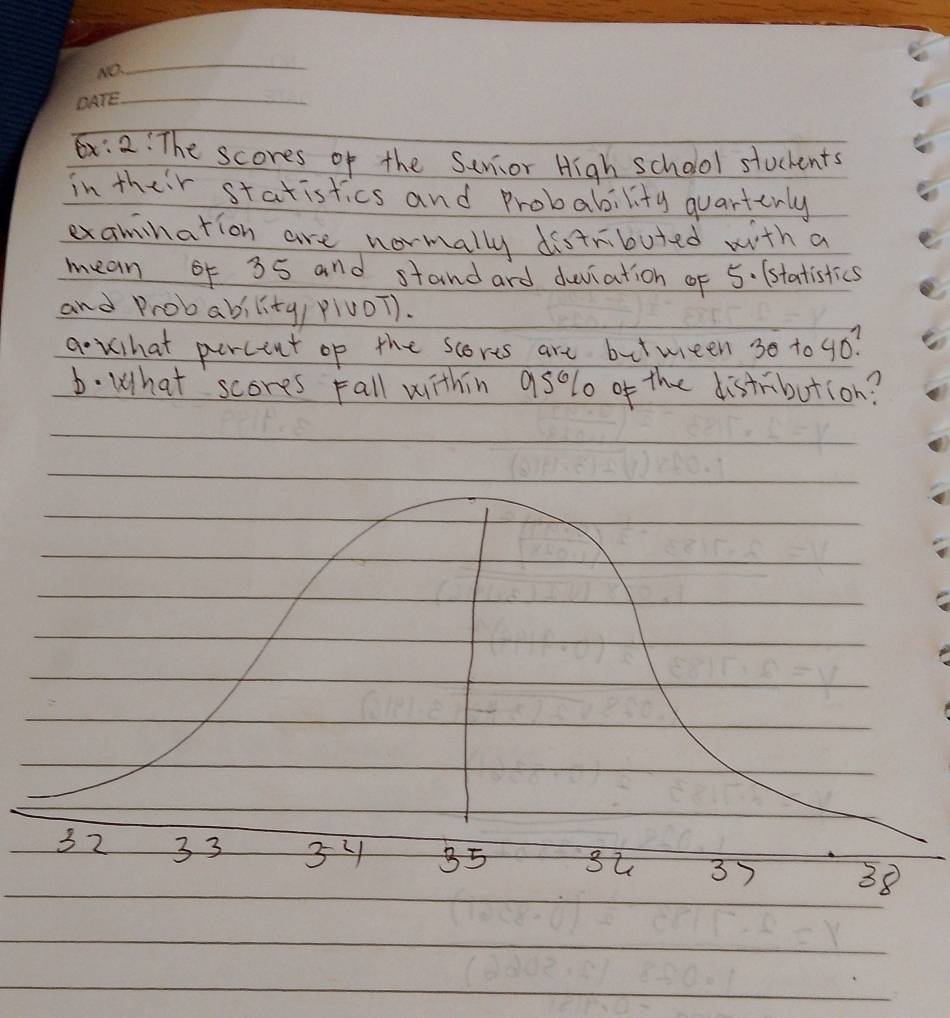 NO.
DATE
Ex: 2: The scores of the Senior High school students
in their statistics and Probability quarterly
examination are normally distributed with a
mean of 35 and standard deviation of 5. (statistics
and Probability, PIVOT).
a. What percent of the scores are between 30 to 40?
b. What scores Fall within 95% of the distribution?
32 33 34 35 36 37 38